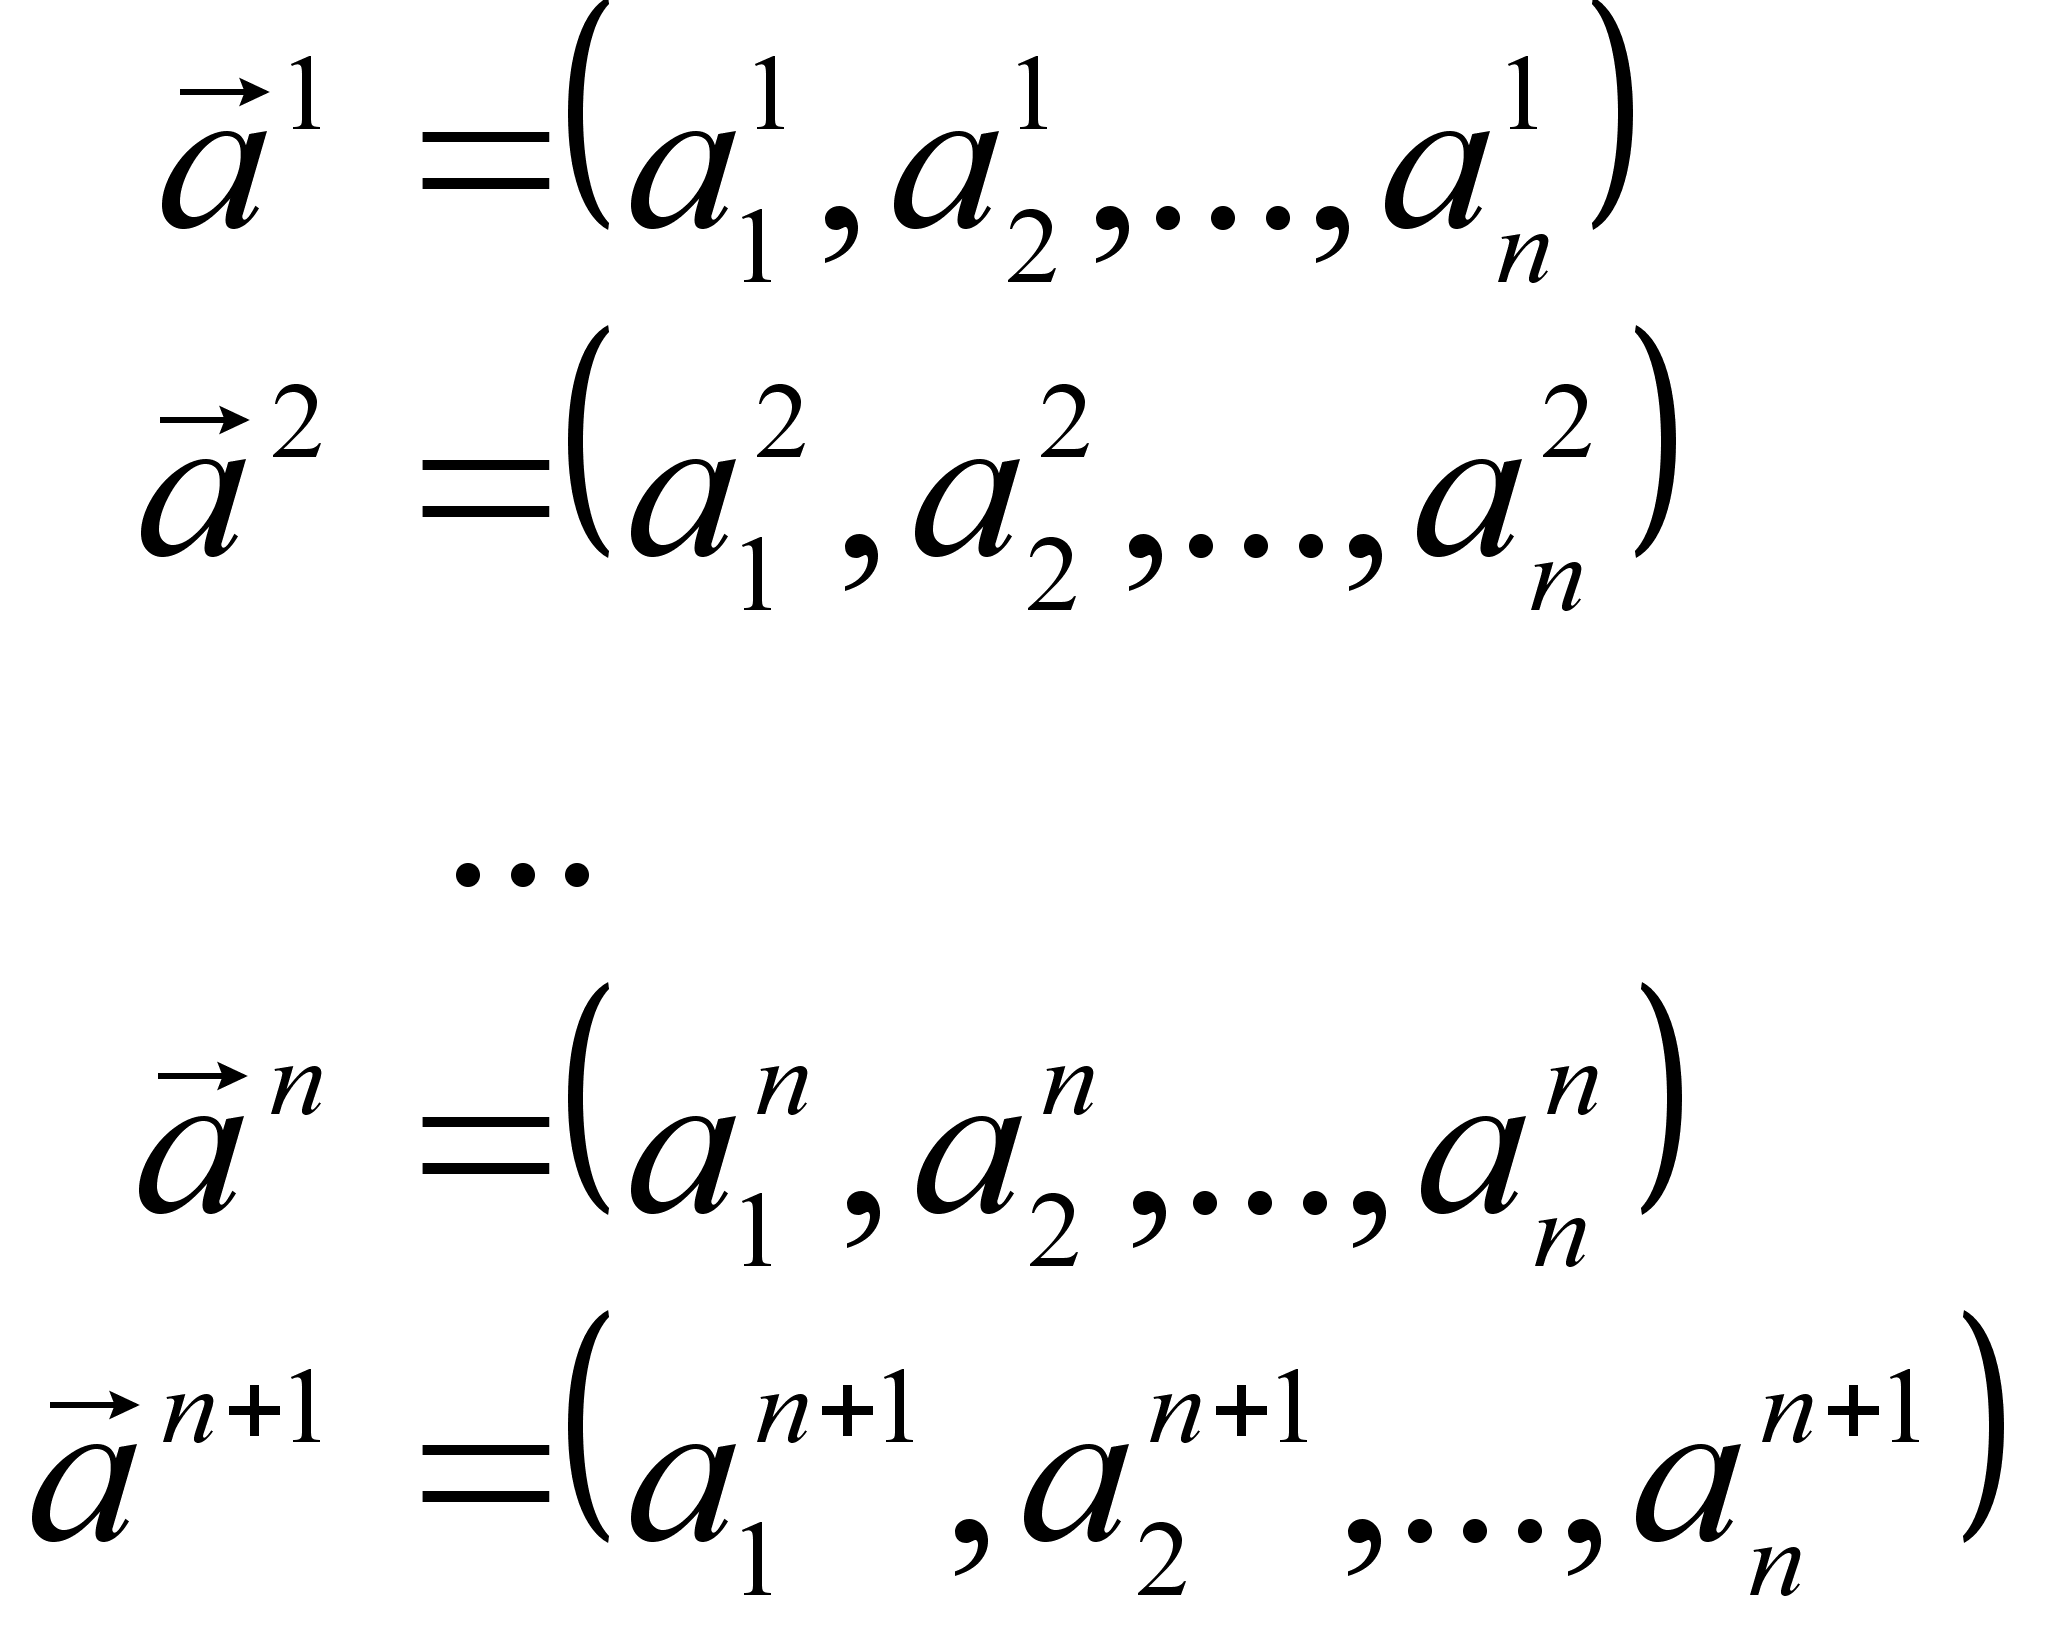 \vec{a}^{1} = (a_{1}^{1}, a_{2}^{1}, ..., a_{n}^{1})
\vec{a}^{2} = (a_{1}^{2}, a_{2}^{2}, ..., a_{n}^{2})
...
\vec{a}^{n} = (a_{1}^{n}, a_{2}^{n}, ..., a_{n}^{n})
\vec{a}^{n+1} = (a_{1}^{n+1}, a_{2}^{n+1}, ..., a_{n}^{n+1})